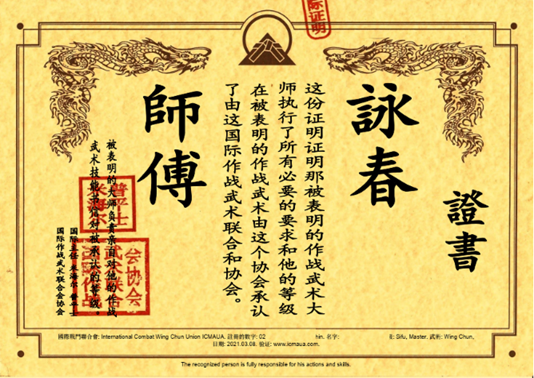 际证明
詠春
證書
这份证明证明那被表明的作战武术大
师执行了所有必要的要求和他的等级
在被表明的作战武术由这个协会承认
了由这国际作战武术联合和协会。
師傅
被表明的大师负责亲面对他的作战
武术技能
国际主任 米海尔 普平士
国际作战武术联合会协会
普平士
会协会
International Combat Wing Chun Union ICMAUA, 註冊的數字: 02 hin. 名字: Sifu, Master. 武術: Wing Chun,
日期: 2021.03.08. 驗證: www.icmaua.com.
The recognized person is fully responsible for his actions and skills.